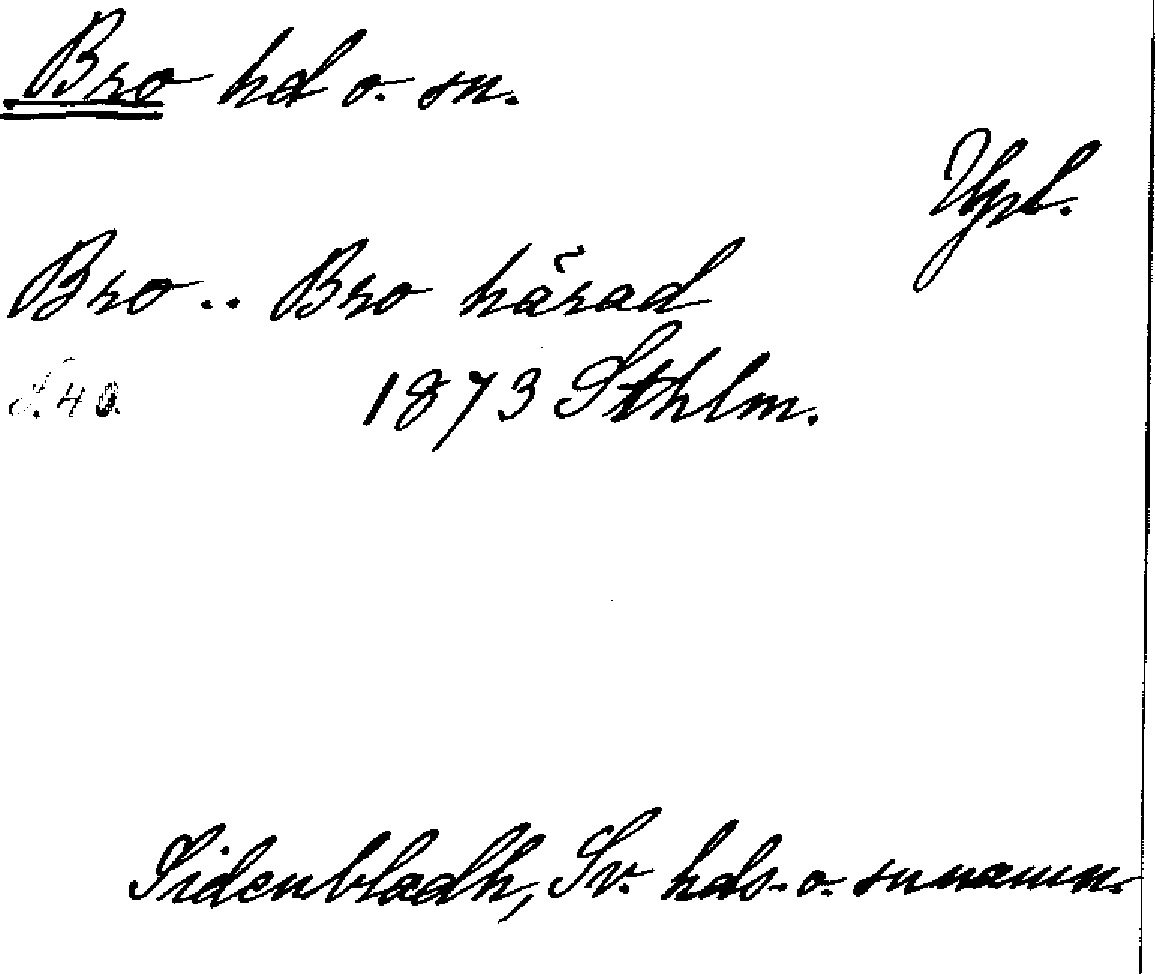 Bro hd o. sn.
Upl.
Bro .. Bro härad
S. 40. 1873 Sthlm.
Sidenbladh, Sv. hds- o. snnamn.